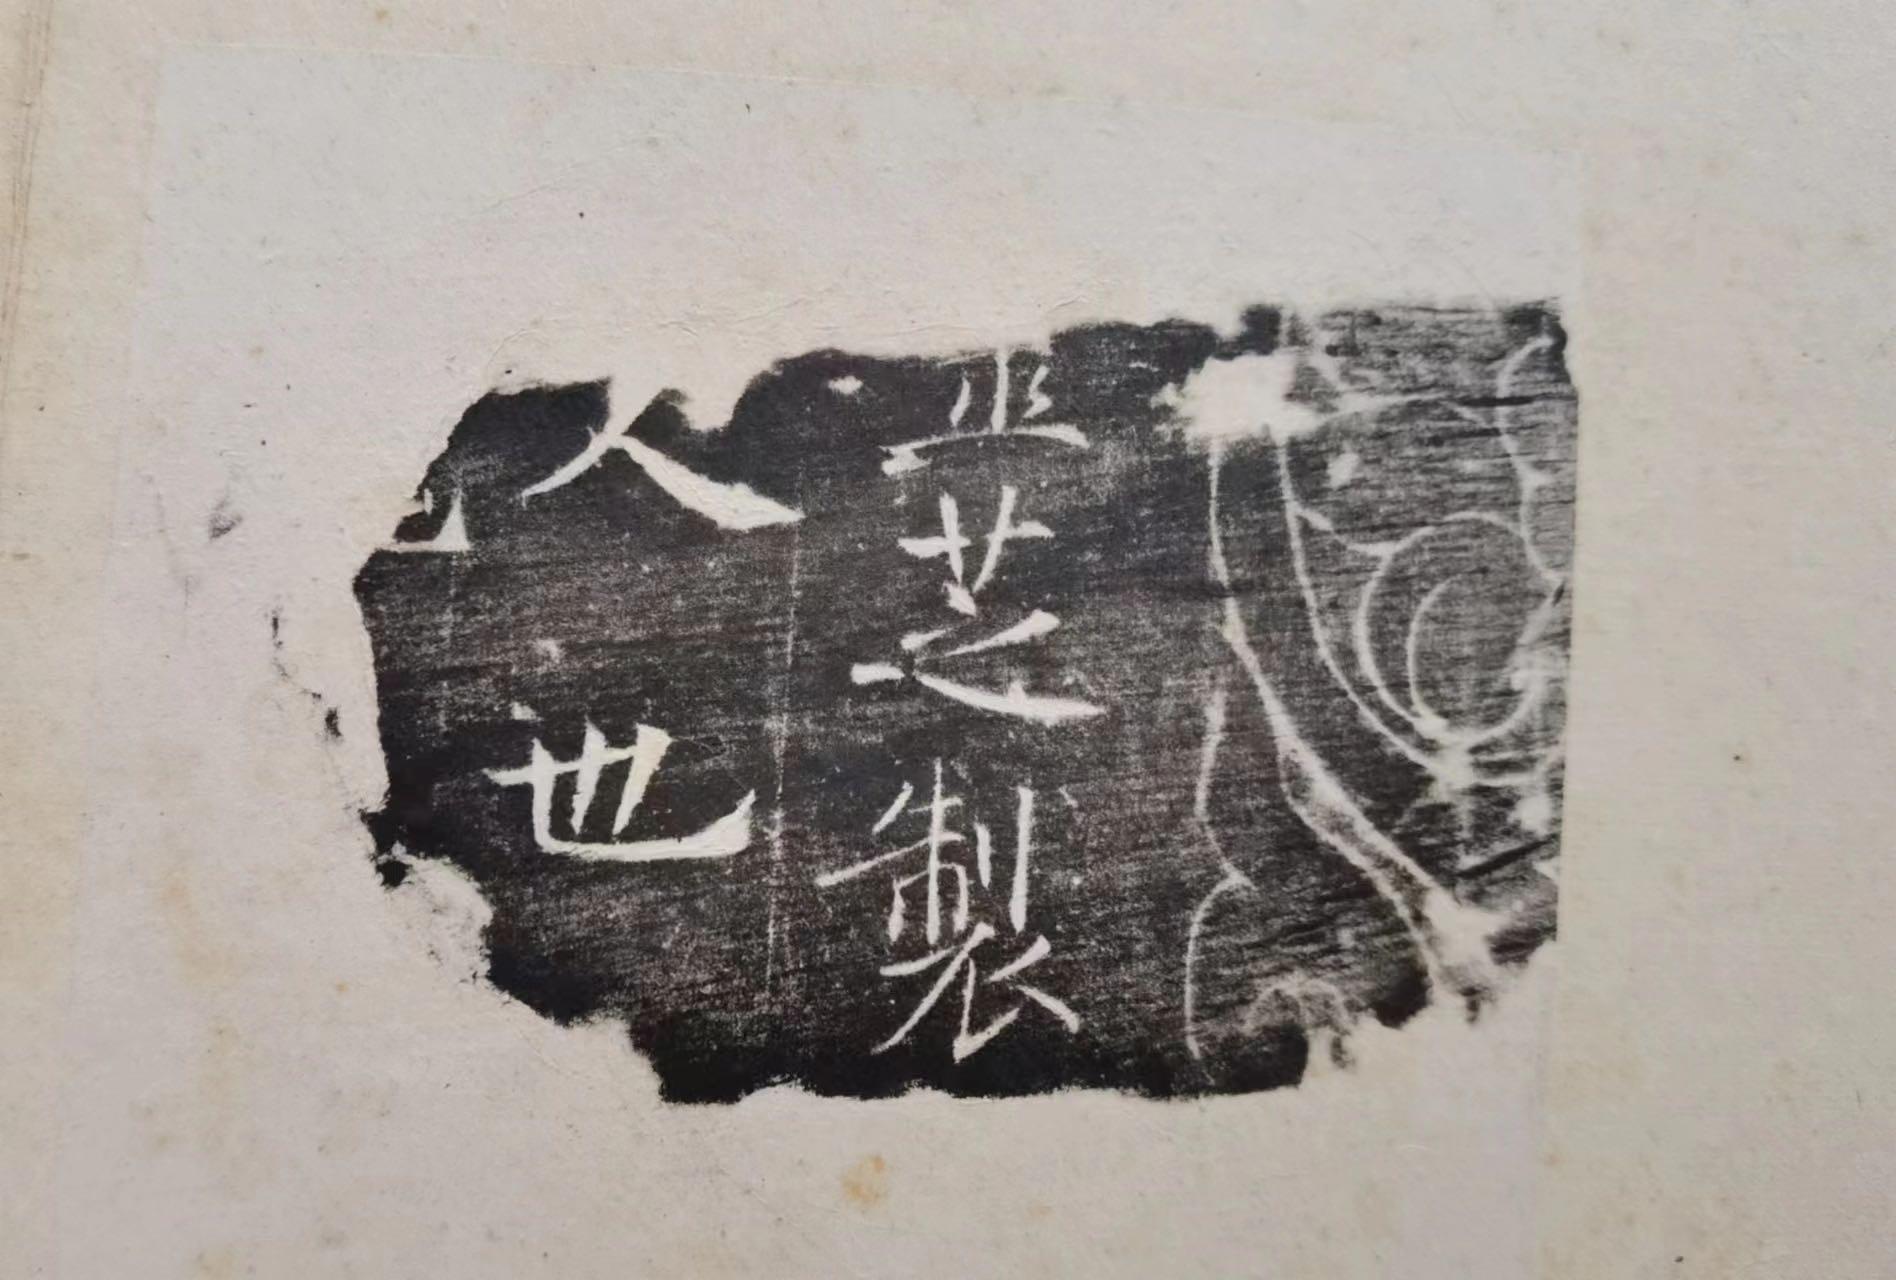 芝製
人也